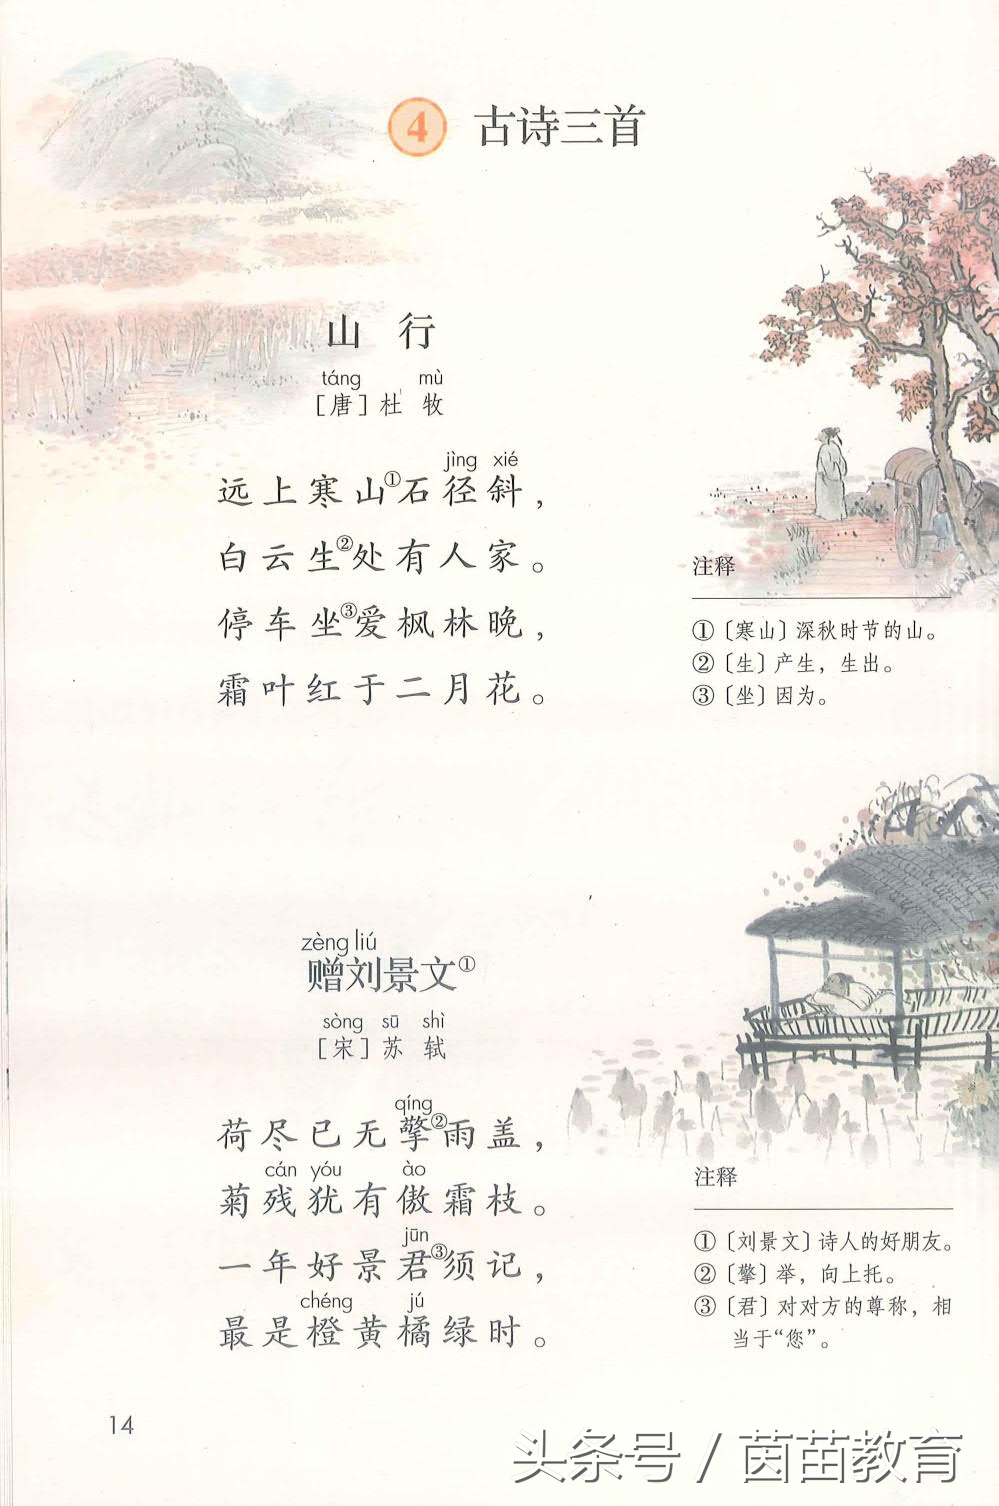 4 古诗三首
山 行
táng mù
［唐］杜 牧
jìng xié
远上寒山①石径斜，
白云生②处有人家。
停车坐③爱枫林晚，
霜叶红于二月花。
注释
①〔寒山〕深秋时节的山。
②〔生〕产生，生出。
③〔坐〕因为。
zèng liú
赠刘景文①
sòng sū shì
［宋］苏 轼
qíng
荷尽已无擎②雨盖，
cán yóu ào
菊残犹有傲霜枝。
jūn
一年好景君③须记，
chéng jú
最是橙黄橘绿时。
注释
①〔刘景文〕诗人的好朋友。
②〔擎〕举，向上托。
③〔君〕对对方的尊称，相
当于“您”。
14
头条号 / 茵苗教育